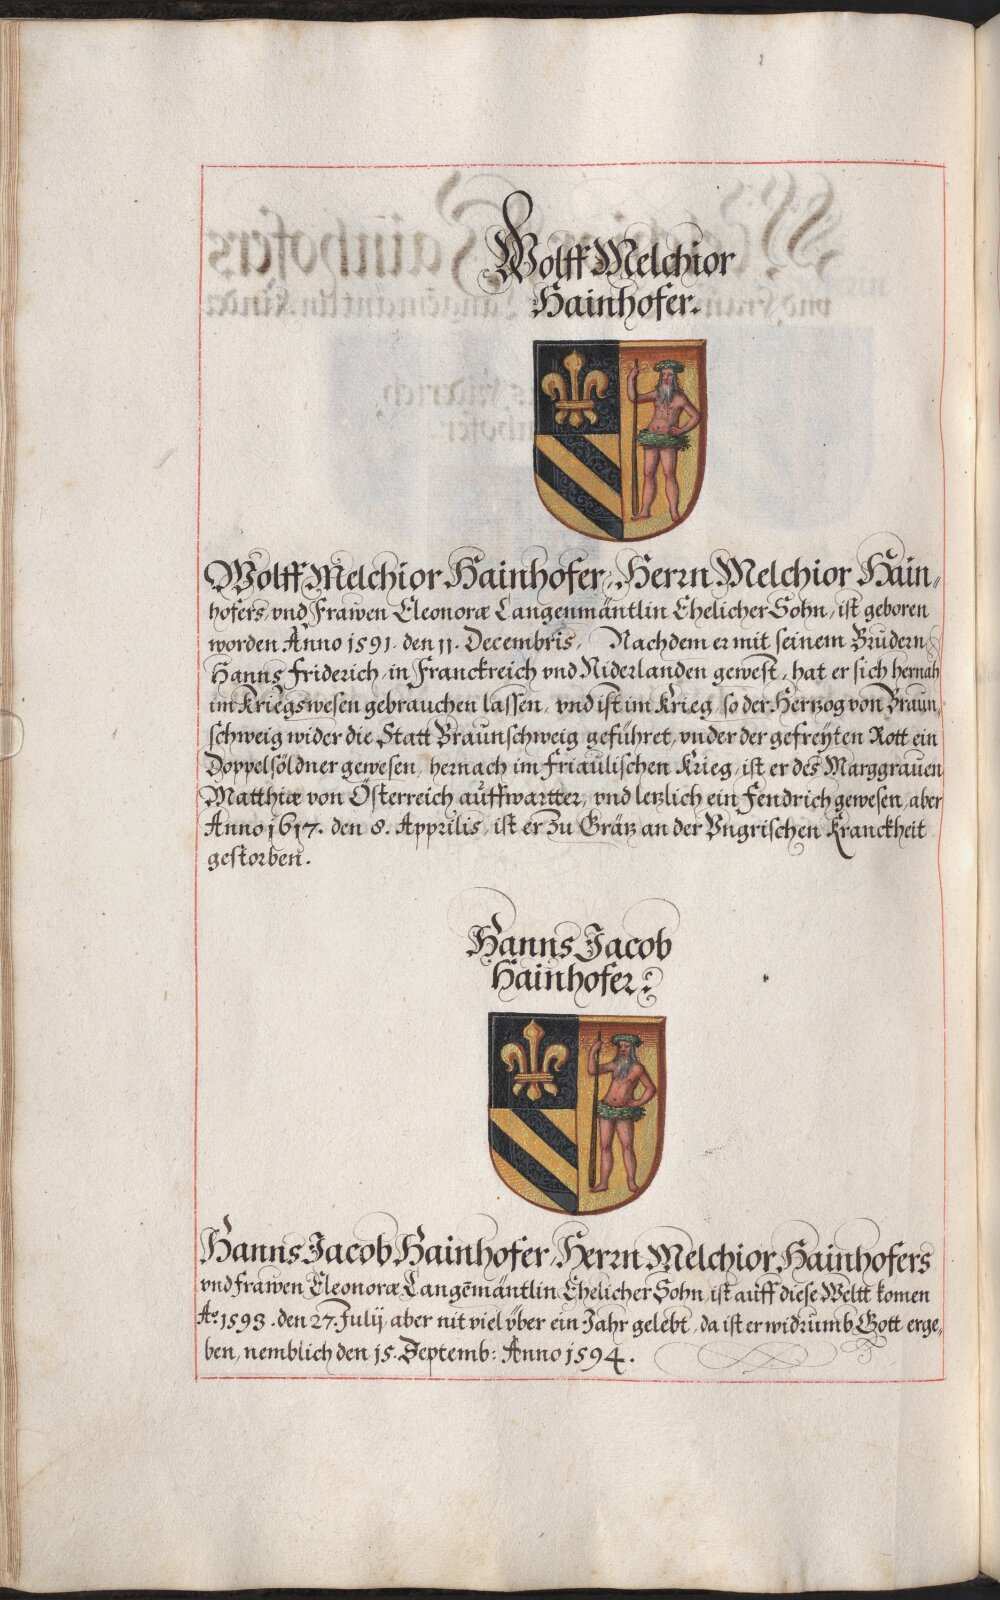 Wolff Melchior
Hainhofer.
Wolff Melchior Hainhofer, Herrn Melchior Hain„
hofers, vnd Frawen Eleonoræ Langenmäntlin Ehelicher Sohn, ist geboren
worden Anno 1591. den 11. Decembris, Nachdem er mit seinem Brudern
Hanns Friderich, in Franckreich vnd Niderlanden gewest, hat er sich hernah
im Kriegswesen gebrauchen lassen, vnd ist im Krieg, so der Hertzog von Braun„
schweig wider die Statt Braunschweig geführet, vnder der gefreyten Rott ein
Doppelsöldner gewesen, hernach im Friaulischen Krieg, ist er des Marggrauen
Matthiæ von Österreich auffwartter, vnd letzlich ein Fendrich gewesen, aber
Anno 1617. den 8. Apprilis, ist er zu Grätz an der Vngrischen Kranckheit
gestorben.
Hanns Jacob
Hainhofer.
Hanns Jacob Hainhofer, Herrn Melchior Hainhofers
vnd Frawen Eleonoræ Langēmäntlin Ehelicher Sohn, ist auff diese Weltt komen
Aº. 1593. den 27. Julij, aber nit viel vber ein Jahr gelebt, da ist er widrumb Gott erge„
ben, nemblich den 15. Septemb: Anno 1594.